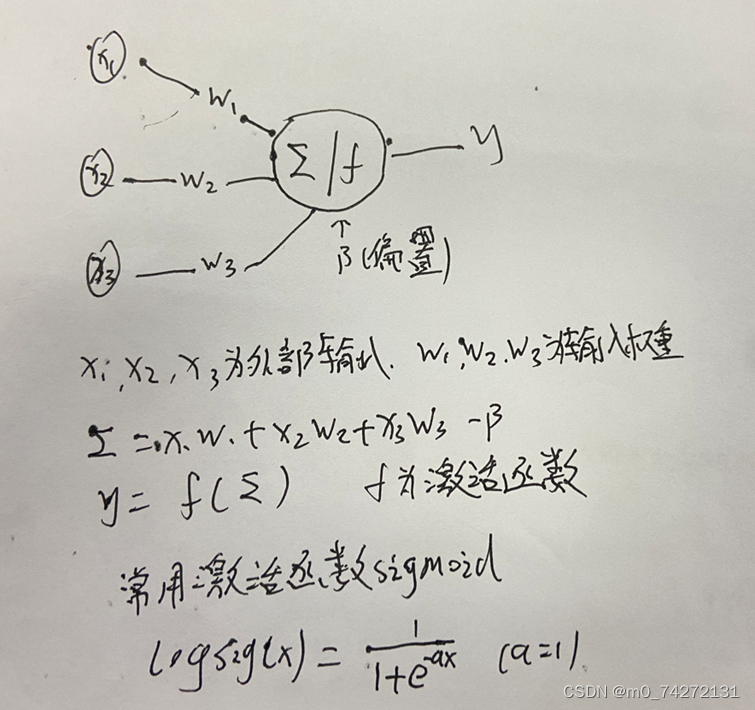 x₁
w₁
Σ/f
y
x₂
w₂
x₃
w₃
↑
β(偏置)
x₁,x₂,x₃为外部输出. w₁,w₂.w₃为输入权重
Σ=x₁w₁+x₂w₂+x₃w₃-β
y=f(Σ) f为激活函数
常用激活函数sigmoid
logsig(x)=1/(1+e^-ax) (a=1)
CSDN @m0_74272131